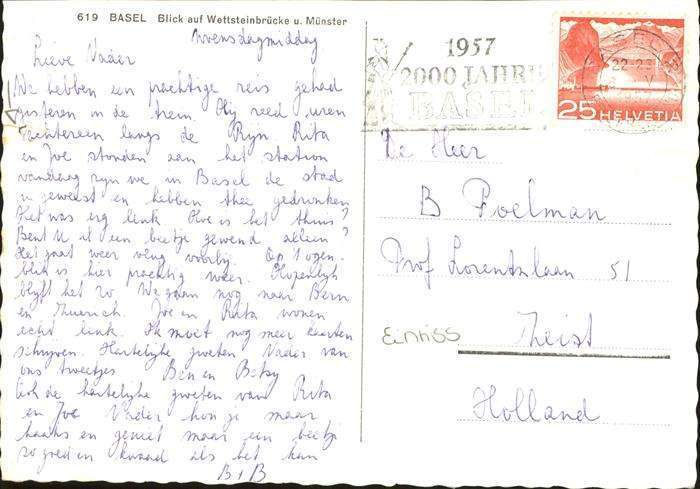 619 BASEL Blick auf Wettsteinbrücke u. Münster
Woensdagmiddag
Lieve Vader
We hebben een prachtige reis gehad
gisteren in de trein. Hij reed uren
achtereen langs de Rijn Rita
en Joe stonden aan het station
vandaag zijn we in Basel de stad
in geweest en hebben thee gedronken
Het was erg leuk Hoe is het thuis?
Bent U al een beetje gewend alleen?
Het gaat weer vlug voorbij. Op 't ogen-
blik is hier prachtig weer. Hopenlijk
blijft het zo. We gaan nog naar Bern
en Zuerich. Joe en Rita wonen
echt leuk. Ik moet nog meer kaarten
schrijven. Hartelijke groeten Vader van
ons tweetjes Ben en Betsy
Ook de hartelijke groeten van Rita
en Joe Vader hou je maar
haaks en geniet maar een beetje
zo goed en kwaad als het kan
B + B
1957
2000 JAHRE
BASEL
22-23
25 HELVETIA
De Heer
B Poelman
Prof Lorentzlaan 51
Einriss
Zeist
Holland